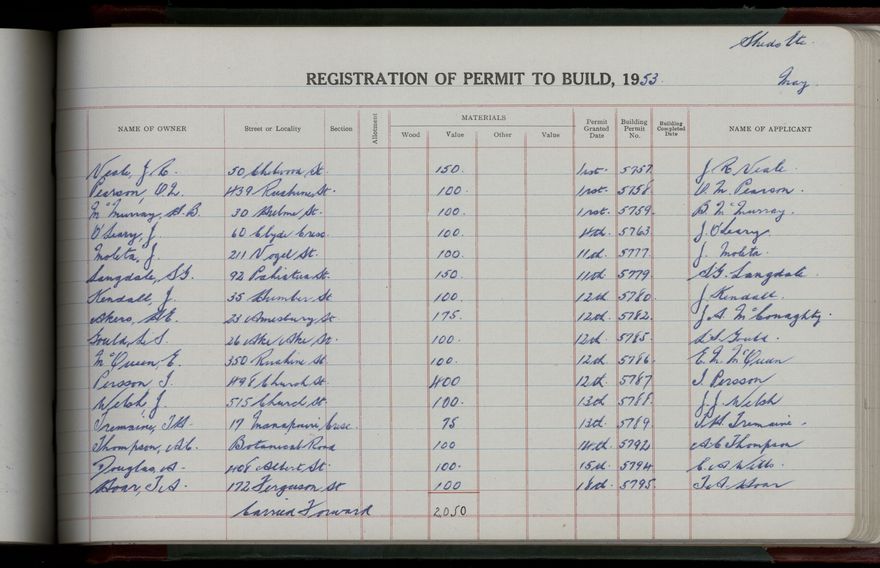 Sheds Etc.
REGISTRATION OF PERMIT TO BUILD, 1953. May
NAME OF OWNER Street or Locality Section Allotment MATERIALS Wood Value Other Value Permit Granted Date Building Permit No. Building Completed Date NAME OF APPLICANT
Neale, J. R. 50 St. 150. 1st. 5757. J R Neale.
Pearson, 439 Ruahine St. 100. 1st. 5758. Pearson.
McMurray, B. 30 Hulme St. 100. 1st. 5759. B. McMurray.
O'Leary, J. 60 Clyde Cresc. 100. 5763 J. O'Leary.
Moleta, J. 211 Vogel St. 100. 11th. 5777. J. Moleta.
Langdale, S.G. 92 Pahiatua St. 150. 11th 5779 S.G. Langdale.
Kendall, J. 35 Humber St. 100. 12th 5780. J Kendall.
Akers, 23 Amesbury St. 175. 12th. 5782. J. A. McConaghty.
Gould, L S. 26 Ake Ake St. 100. 12th. 5785. L S Gould.
McQueen, E. 350 Ruahine St. 100. 12th 5786. E. McQueen
Persson J. 498 Church St. 400 12th. 5787 J. Persson
Welsh, J. 515 Church St. 100. 13th 5788. J. J. Welsh
Tremaine, J.H. 17 Manapouri Cresc. 75 13th. 5789. J. H. Tremaine.
Thompson, A.C. Botanical Road 100 14th. 5792 A C Thompson
Douglas, A. 408 Albert St. 100. 15th. 5794 C. A Wills.
Hoar, T.A. 172 Ferguson St 100 18th. 5795. T A Hoar
Carried Forward 2050